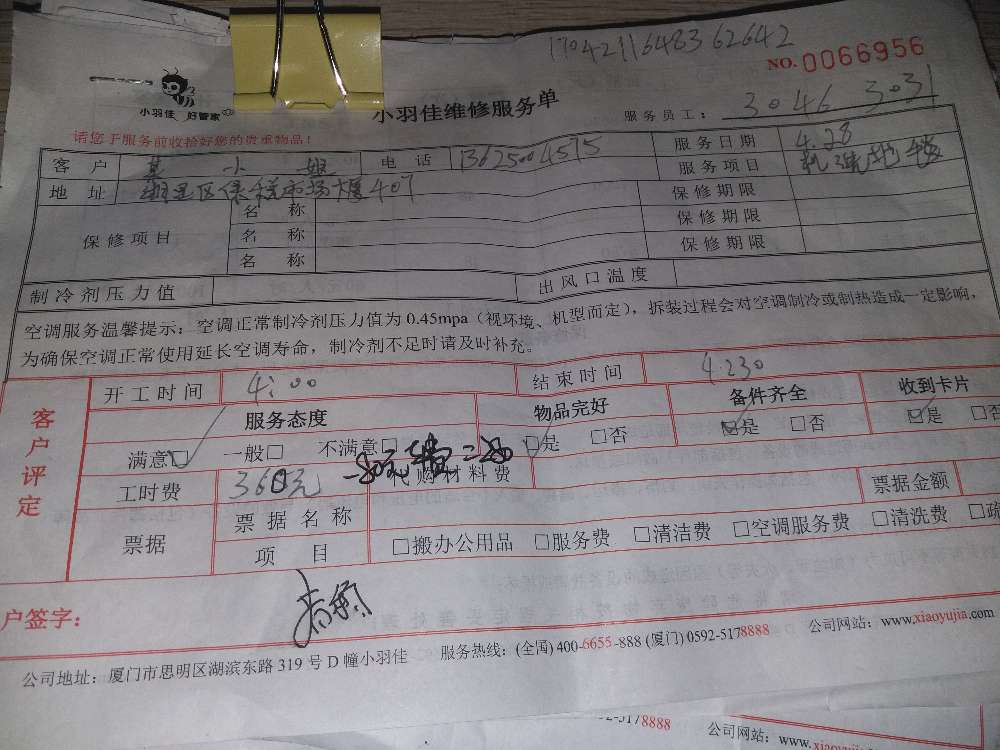 1704211648362642
NO.0066956
小羽佳 好管家
小羽佳维修服务单
服务员工: 3046 3031
请您于服务前收拾好您的贵重物品!
客 户 小姐 电 话 13625004575 服务日期 4.28
地 址 407 服务项目
保修项目 名 称 保修期限
名 称 保修期限
名 称 保修期限
制冷剂压力值 出风口温度
空调服务温馨提示: 空调正常制冷剂压力值为 0.45mpa (视环境、机型而定), 拆装过程会对空调制冷或制热造成一定影响,
为确保空调正常使用延长空调寿命, 制冷剂不足时请及时补充。
客户评定
开工时间 4:00 结束时间 4:30
服务态度 物品完好 备件齐全 收到卡片
满意□ 一般□ 不满意□ □是 □否 □是 □否 □是 □否
工时费 360元 -80元 =280 代购材料费
票据 票据名称 票据金额
项 目 □搬办公用品 □服务费 □清洁费 □空调服务费 □清洗费 □疏
户签字:
公司地址: 厦门市思明区湖滨东路 319 号 D 幢小羽佳 服务热线: (全国) 400-6655-888 (厦门) 0592-5178888 公司网站: www.xiaoyujia.com
92-5178888 公司网站: www.xiaoyu